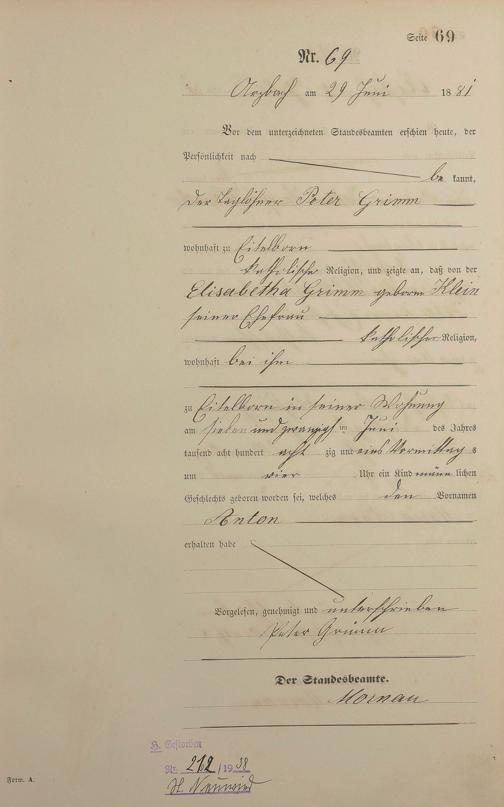 Seite 69
Nr. 69
Arzbach am 29 Juni 1881
Vor dem unterzeichneten Standesbeamten erschien heute, der
Persönlichkeit nach
be kannt,
der Taglöhner Peter Grimm
wohnhaft zu Eitelborn
katholischer Religion, und zeigte an, daß von der
Elisabetha Grimm geborene Klein
seiner Ehefrau
katholischer Religion,
wohnhaft bei ihm
zu Eitelborn in seiner Wohnung
am sieben und zwanzigst en Juni des Jahres
tausend acht hundert acht zig und eins Vormittag s
um vier Uhr ein Kind männ lichen
Geschlechts geboren worden sei, welches den Vornamen
Anton
erhalten habe
Vorgelesen, genehmigt und unterschrieben
Peter Grimm
Der Standesbeamte.
Mornau
H. Gestorben
Nr. 212/1938
St. Neuwied
Form. A.